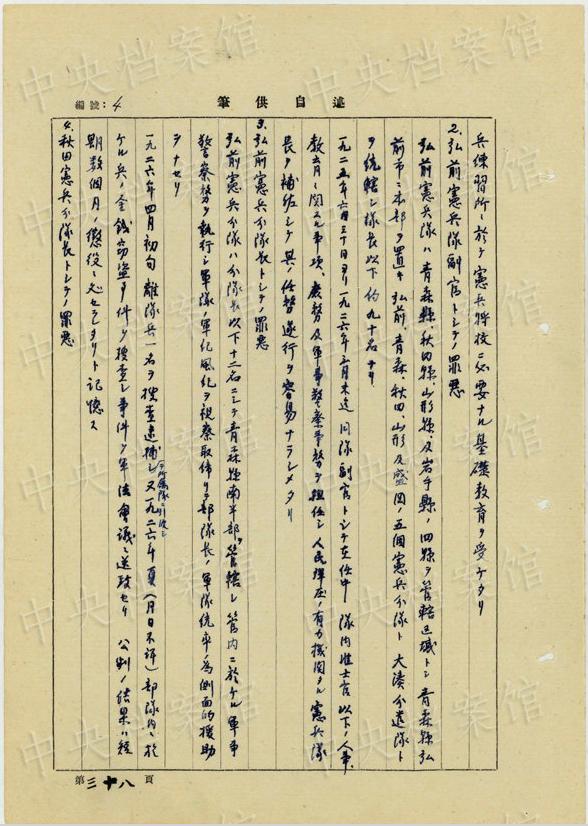 編號：4
筆供自述
兵練習所ニ於テ憲兵将校ニ必要ナル基礎教育ヲ受ケタリ
2.弘前憲兵隊副官トシテノ罪悪
弘前憲兵隊ハ青森縣、秋田縣、山形縣、及岩手縣ノ四縣ヲ管轄区域トシ青森縣弘
前市ニ本部ヲ置キ弘前、青森、秋田、山形及盛岡ノ五個憲兵分隊ト大湊分遣隊ト
ヲ統轄シ隊長以下約九十名ナリ
一九二五年六月三十日ヨリ一九二六年三月末迄同隊副官トシテ在任中隊内准士官以下ノ人事、
教育ニ関スル事項、庶務及軍事警察事務ヲ担任シ人民弾圧ノ有力機関タル憲兵隊
長ヲ補佐シテ其ノ任務遂行ヲ容易ナラシメタリ
3.弘前憲兵分隊長トシテノ罪悪
弘前憲兵分隊ハ分隊長以下十二名ニシテ青森縣南半部ヲ管轄シ管内ニ於ケル軍事
警察務ヲ執行シ軍隊ノ軍紀風紀ヲ視察取締リ部隊長ノ軍隊統率ノ為側面的援助
ヲナセリ
一九二六年四月初旬離隊兵一名ヲ捜査逮捕シテ所属隊ニ引渡シ又一九二六年夏（月日不詳）部隊内ニ於
ケル兵ノ金銭窃盗事件ヲ捜査シ事件ヲ軍法會議ニ送致セリ 公判ノ結果ハ短
期数個月ノ懲役ニ処セラレタリト記憶ス
4.秋田憲兵分隊長トシテノ罪悪
第三十八頁
中央档案馆